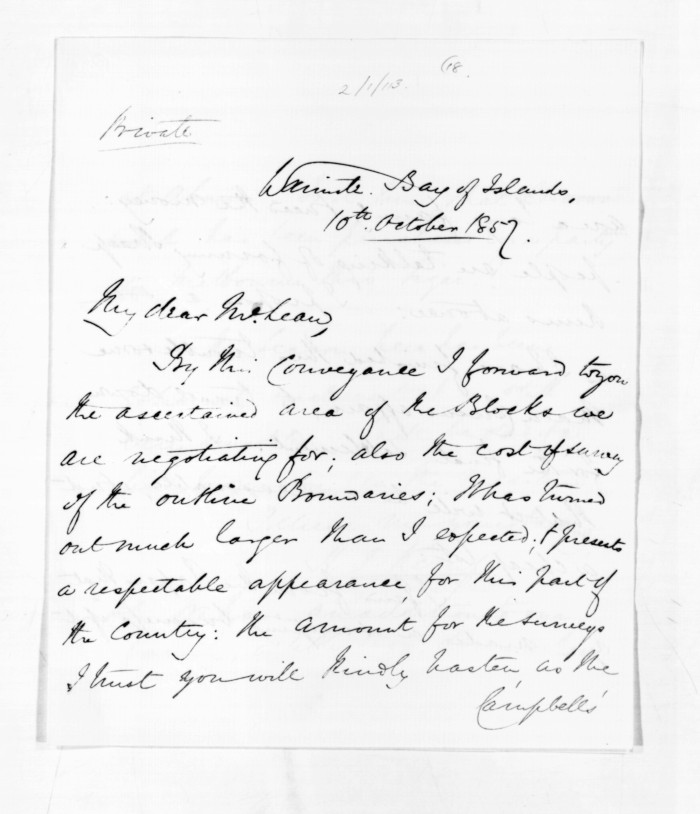 2/1/113.
618.
Private
Waimate. Bay of Islands,
10th October 1857.
My dear McLean,
By this Conveyance I forward to you
the ascertained area of the Blocks we
are negotiating for; also the cost of survey
of the outline Boundaries; It has turned
out much larger than I expected, & presents
a respectable appearance for this part of
the Country: the amount for the surveys
I trust you will kindly hasten, as the
Campbells'